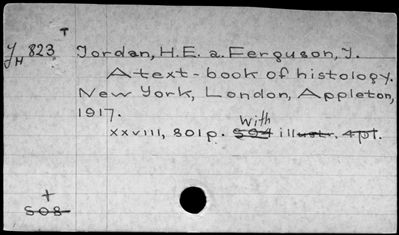 T
YH 823 Jordan, H.E. a. Ferguson, J.
A text-book of histology.
New York, London, Appleton,
1917.
With
xxviii, 801p. 594 illust. 4pl.
+
S08